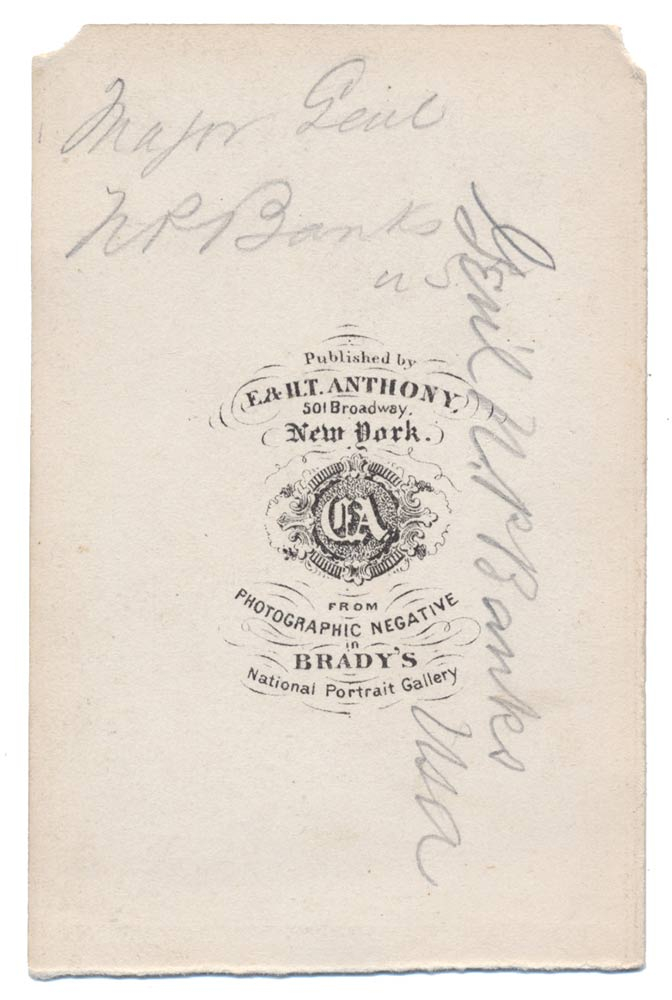 Major Genl
NP Banks
US
Genl N.P Banks
USA
Published by
E. & H.T. ANTHONY,
501 Broadway,
New York.
EA
FROM
PHOTOGRAPHIC NEGATIVE
in
BRADY'S
National Portrait Gallery